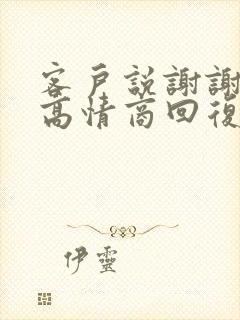 客戶説謝謝
高情商回復
伊靈